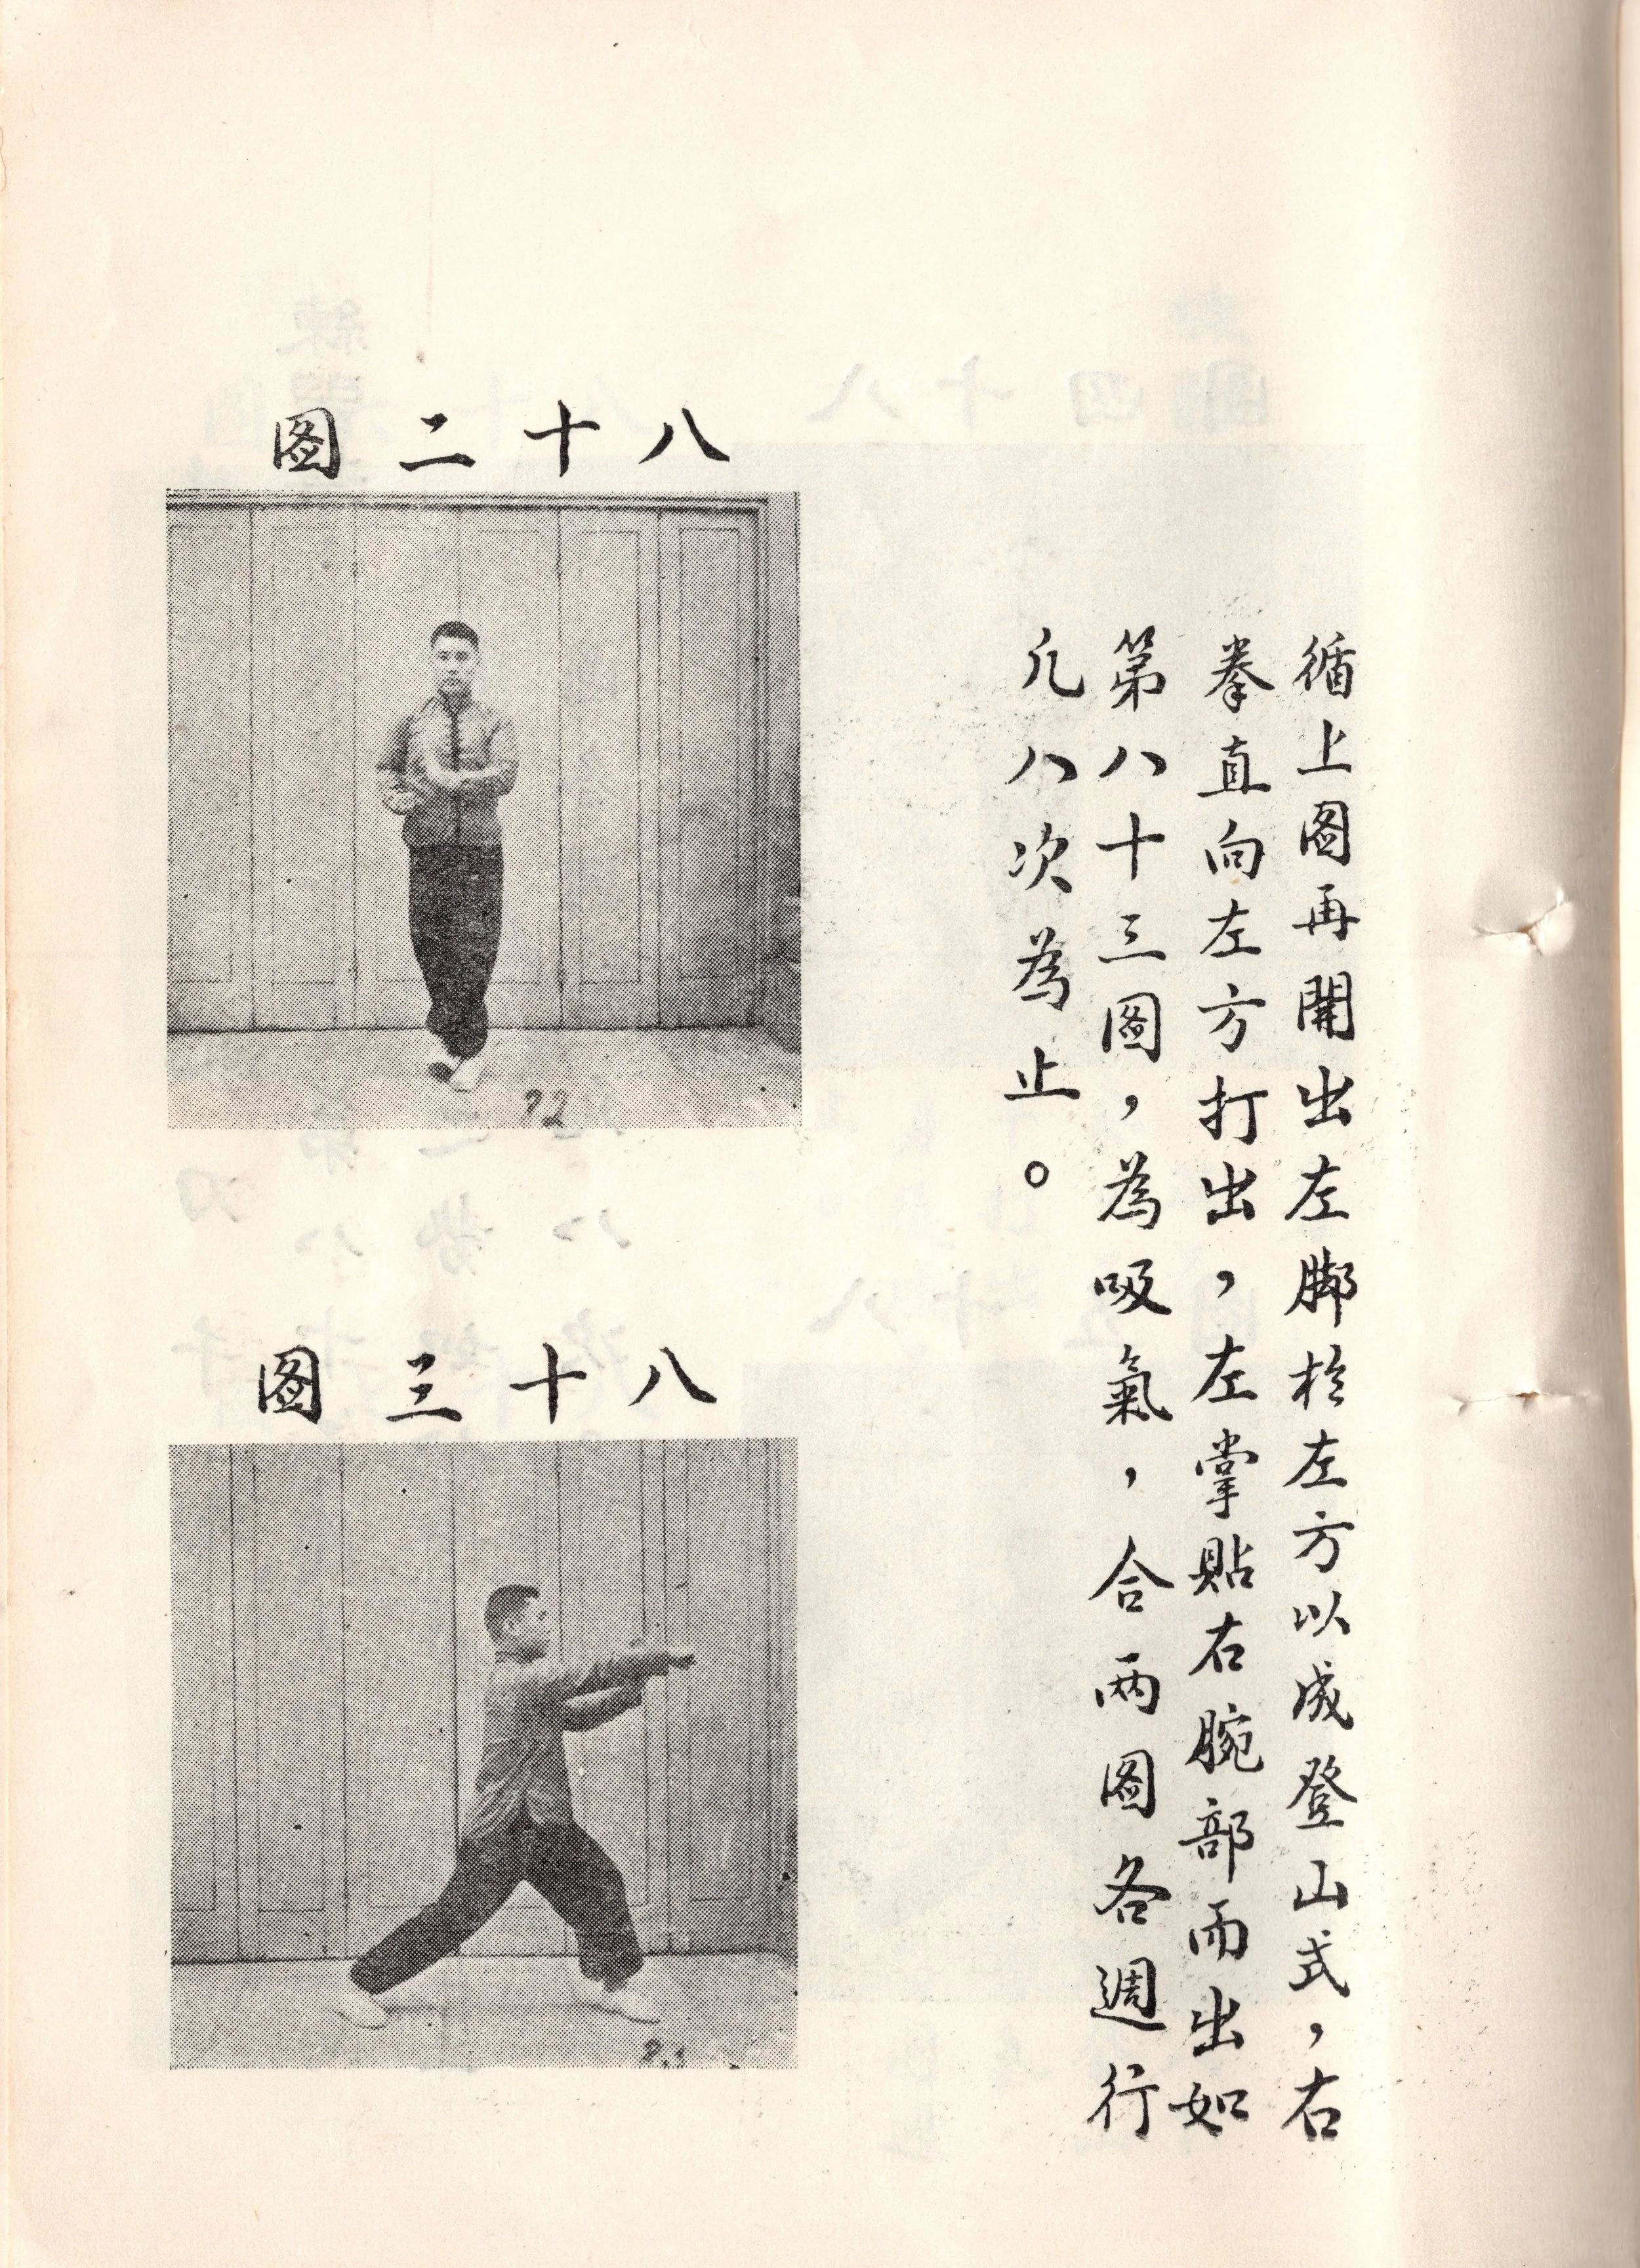 循上图再開出左脚於左方以成登山式，右
拳直向左方打出，左掌貼右腕部而出如
第八十三图，為吸氣，合两图各週行
凡八次為止。
八十二图
八十三图